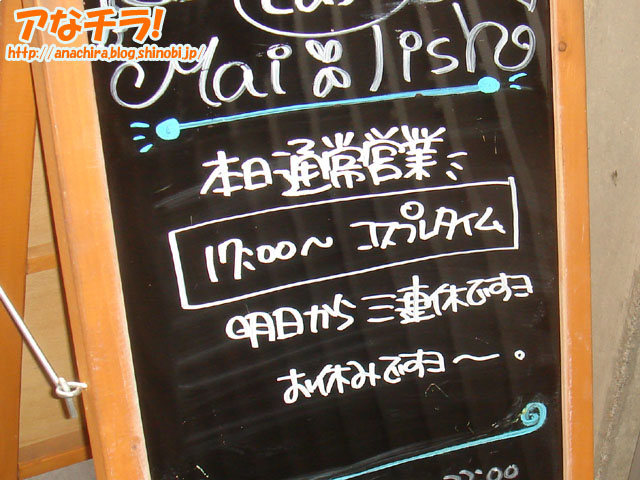 アなチラ!
http://anachira.blog.shinobi.jp/
Mai lish
本日通常営業
17:00〜 コスプレタイム
明日から 三連休ですヨ
お休みですヨ〜。
22:00